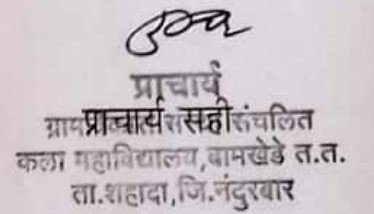 प्राचार्य
ग्राम प्राचार्य सही संचलित
कला महाविद्यालय,बामखेडे त.त.
ता.शहादा,जि.नंदुरबार